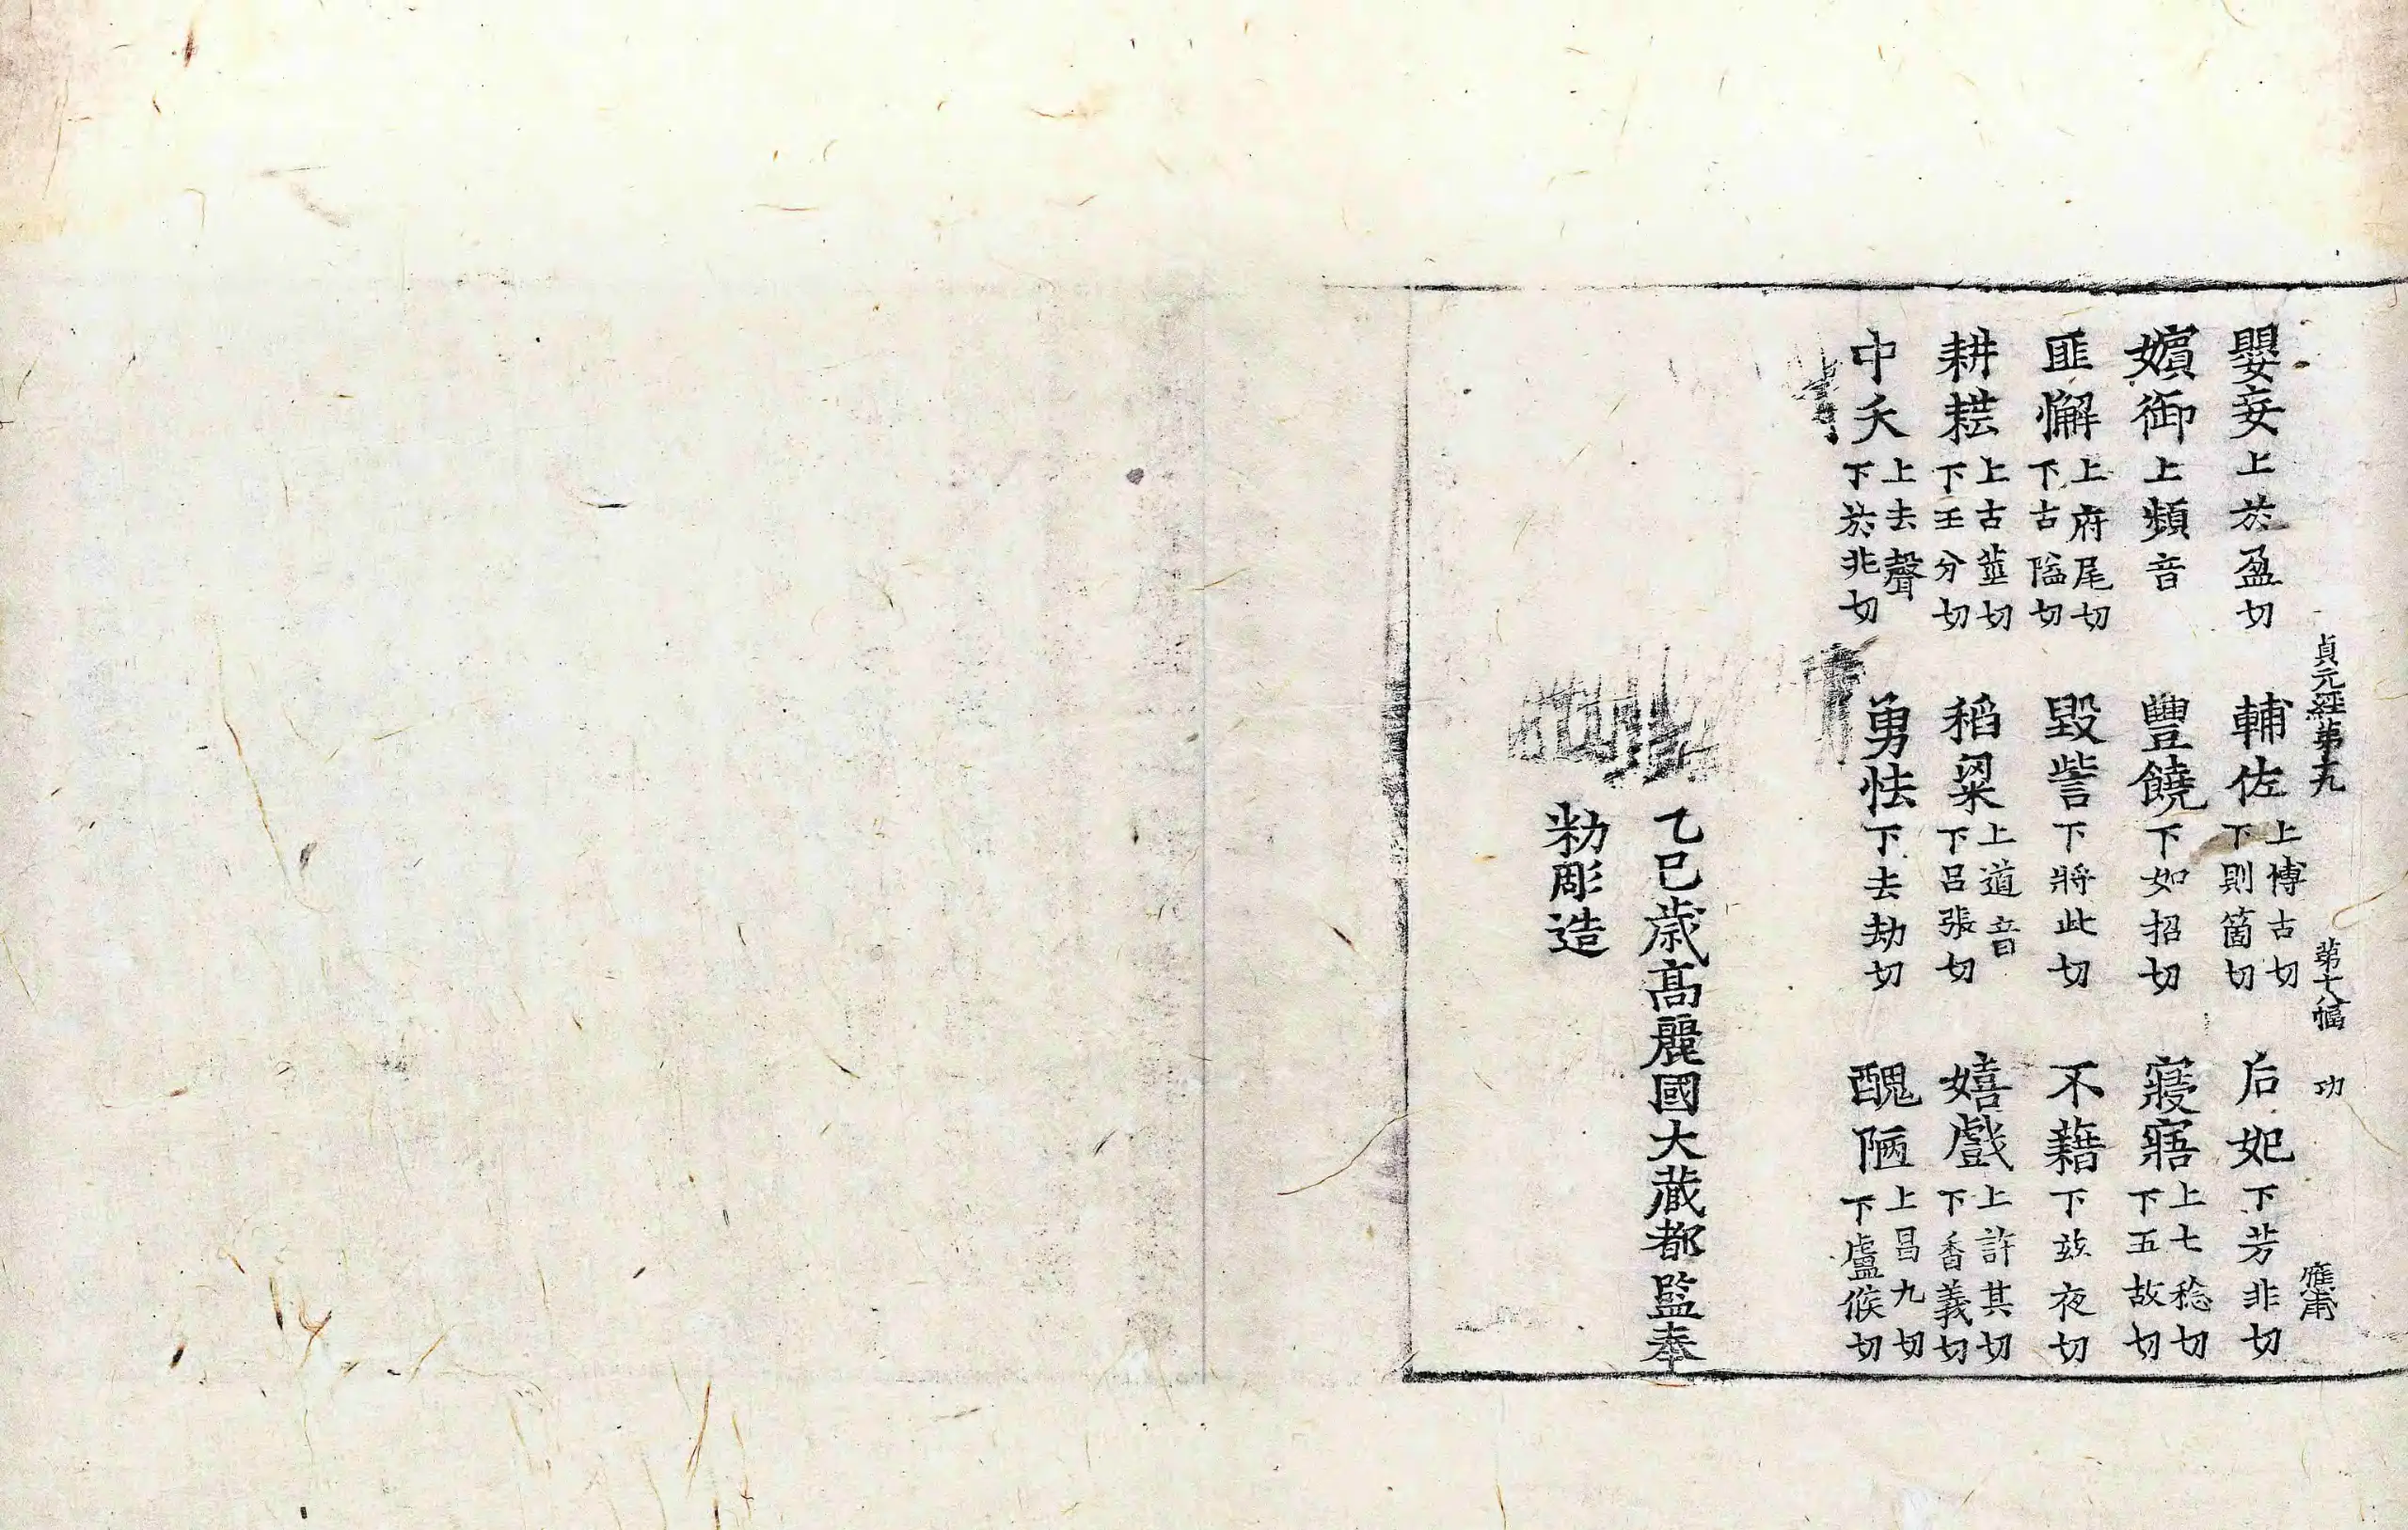 貞元經第十九 第十八幅 功 應甫
嬰妄上於盈切 輔佐上博古切下則箇切 后妃下芳非切
嬪御上頻音 豐饒下如招切 寢寤上七稔切下五故切
匪懈上府尾切下古隘切 毀訾下將此切 不藉下玆夜切
耕耘上古莖切下王分切 稻粱上道音下呂張切 嬉戲上許其切下香義切
中夭上去聲下於兆切 勇怯下去劫切 醜陋上昌九切下盧候切
乙巳歲高麗國大藏都監奉
勑彫造